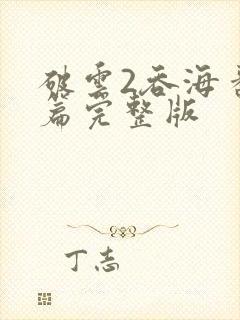 破雲2吞海番
篇完整版
丁志